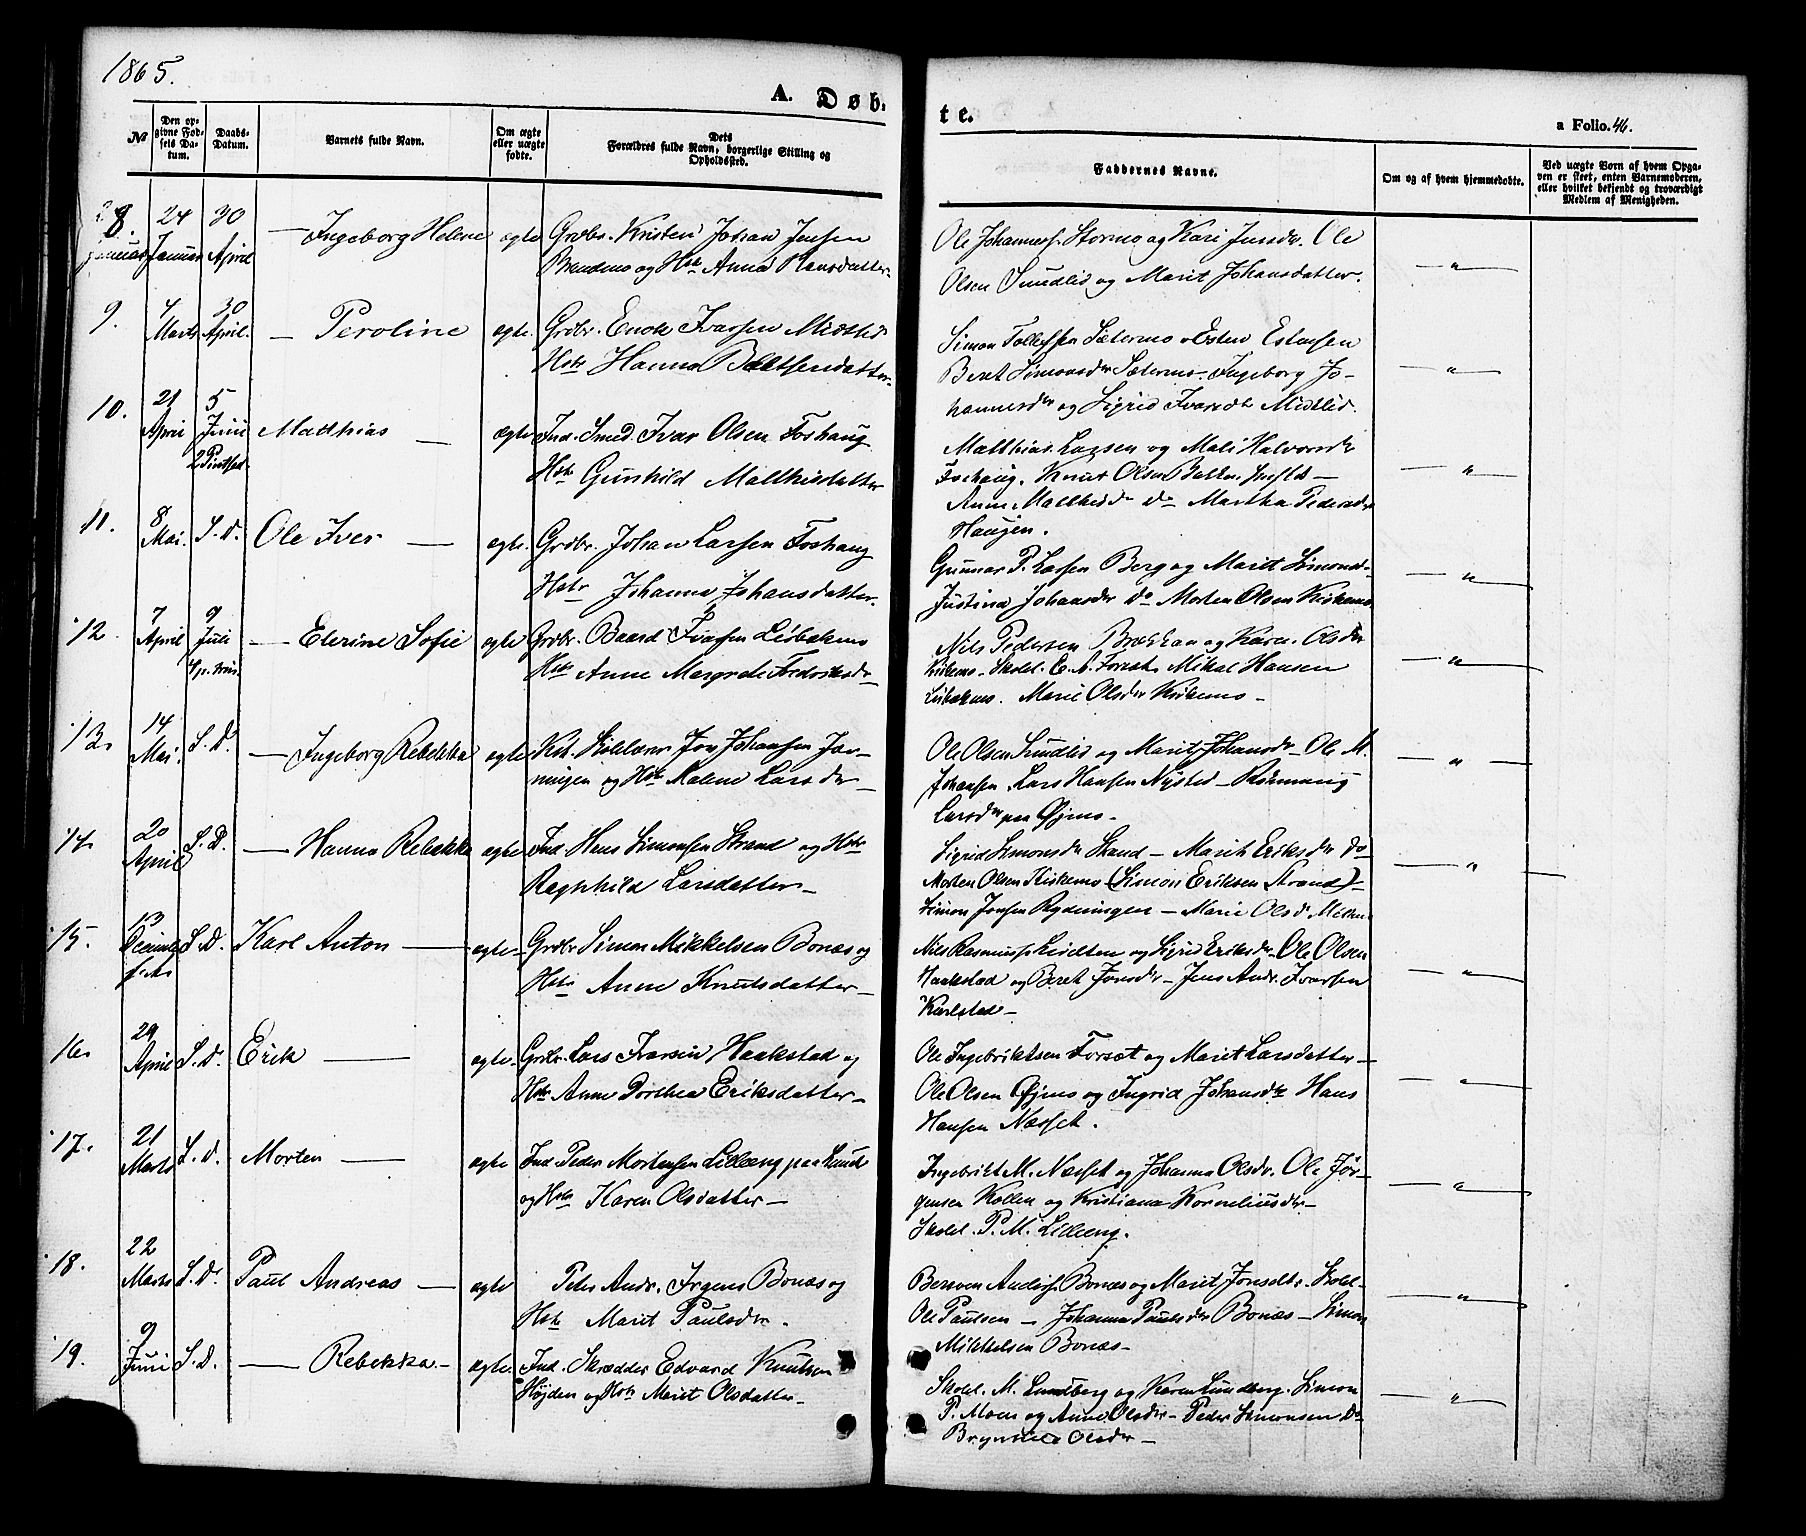 1865.
A. Døb.
te.
a Folio. 46.
№
Den opgivne Fødsels Datum.
Daabs-Datum.
Barnets fulde Navn.
Om ægte eller uægte fødte.
Dets Forældres fulde Navn, borgerlige Stilling og Opholdssted.
Faddernes Navne.
Om og af hvem hjemmedøbte.
Ved uægte Børn af hvem Opgaven er skeet, enten Barnemoderen, eller hvilket bekjendt og troværdigt Medlem af Menigheden.
8. 24 Januar 30 April — Ingeborg Helene ægte Grdbr. Kristen Johan Jensen
Brendmo og Hst Anna Hansdatter.
Ole Johanness. Stormo og Kari Jensdr. Ole
Olsen Sundlid og Marit Johansdatter. — " —
9. 4 Marts 30 April. — Peroline ægte. Grdbr. Enok Ivarsen Midtlid
Hstr Hanna Baltsersdatter.
Simon Tollefsen Sætermo Esten Estensen
Beret Simonsdr Sætermo. Ingeborg Jo-
hannesdr og Sigrid Ivarsdtr Midtlid. — " —
10. 21 April 5 Juni 2 Pintsed. Matthias — ægte Ind. Smed. Ivar Olsen Foshaug
Hstr Gunhild Matthisdatter
Matthias Larsen og Mali Halvorsdr
Foshaug. Knut Olsen Bakken —
Anne Mathisdr do Martha Pedersdr
Haugen. — " —
11. 8 Mai. S. D. Ole Iver — ægte. Grdbr. Johan Larsen Foshaug
Hstr Johanna Johansdatter.
Gunnar P. Larsen Berg og Marit Simonsd-
Justina Johansdr do Morten Olsen Kirkemo — " —
12. 7 April 9 Juli 4 p. trin. — Elerine Sofie ægte Grdbr. Baard Ivarsen Lisbakmo
Hstr Anne Margrete Fredriksdr
Nils Pedersen Brækkan og Karen Olsdr
Kirkemo. Skolel. E. A. Forset. Mikal Hansen
Lisbakmo. Marie Olsdr Kirkemo — — " —
13. 14 Mai S. D. — Ingeborg Rebekka ægte Kst. Skolelærer Jon Johansen Jor-
mingen og Hstr Malene Larsdr —
Ole Olsen Sundlid og Marit Johansdr — Ole M.
Johansen. Lars Hansen Nysted —
Larsdr paa Øjmo. — " —
14. 20 April S. D. — Hanna Rebekka ægte Ind Hans Simonsen Strand og Hstr
Ragnhild Larsdatter —
Sigrid Simonsdr Strand — Marit Eriksdr do
Morten Olsen Kirkemo (Simon Eriksen Strand) —
Simon Jonsen Rydningen — Marie Olsd — " —
15. 13 S. D. Karl Anton — ægte — Grdbr Simon Mikkelsen Bonæs og
Hstr Anne Knutsdatter —
Nils Rasmuss og Sigrid Eriksdr. Ole Olsen
Haakstad og Beret Jonsdr — Jens Andr. Ivarsen
Karlstad — — " —
16. 29 April S. D. Erik — ægte. Grdbr. Lars Ivarsen Haakstad og
Hstr Anne Dorthea Eriksdatter —
Ole Ingebriktsen Forset og Marit Larsdatter —
Ole Olsen Øjmo og Ingrid Johansdtr Hans
Hansen Næsset. — " —
17. 21 Marts S. D. Morten — ægte Ind Peder Mortensen Lilleeng paa
og Hstr Karen Olsdatter —
Ingebrikt M. Næsset og Johanna Olsdr. Ole Jør-
gensen Kollen og Kristiana Korneliusdr —
Skolel. P. M. Lilleeng. — " —
18. 22 Marts S. D. Paul Andreas — ægte Peter Andr. Irgens Bonæs og
Hstr Marit Paulsdr.
Bersven Anders. Bonæs og Marit Jonsdtr. Skolel.
Ole Paulsen — Johanna Paulsdr Bonæs — Simon
Mikkelsen Bonæs — — " —
19. 9 Juni S. D. — Rebekka — ægte. Ind. Skrædder Edvard Knutsen
Højden og Hstr Marit Olsdatter —
Skolel. M. Lundberg og Karen Lundberg. Simon
P. Moen og Anne Olsdr — Peder Simonsen do
Olsdr — — " —